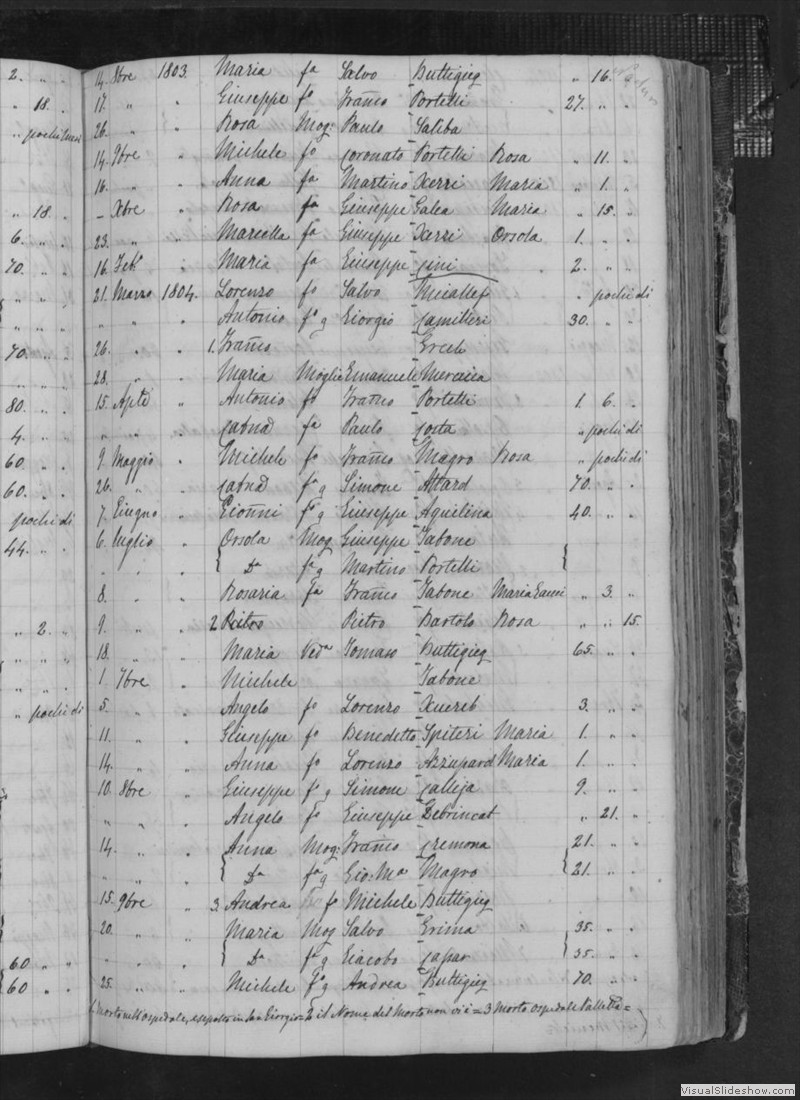 2. " "
" 18. "
" pochi mesi
" 18. "
6. " "
70. " "
70. " "
80. " "
4. " "
60. " "
60. " "
pochi di
44. " "
" 2. "
" pochi di
60 " "
60 " "
14. 8bre 1803. Maria fa Salvo Buttigieg " 16. "
17. " " Giuseppe fo Franco Portelli 27. " "
26. " " Rosa Mog: Paulo Saliba
14. 9bre " Michele fo Coronato Portelli Rosa " 11. "
16. " " Anna fa Martino Xerri Maria " 1. "
– Xbre " Rosa fa Giuseppe Galea Maria " 15. "
23. " " Marcella fa Giuseppe Xerri Orsola 1. " "
16. Feb. " Maria fa Giuseppe Cini 2. " "
21. Marzo 1804. Lorenzo fo Salvo Micallef " pochi di
" " " Antonio fo g Giorgio Camilleri 30. " "
26. " " 1. Franco Grech
28. " " Maria Moglie Emanuele Mercieca
15. Aple " Antonio fo Franco Portelli 1. 6. "
" " " Catna fa Paulo Costa " pochi di
9. Maggio " Michele fo Franco Magro Rosa " pochi di
26. " " Catna fa g Simone Attard 70. " "
7. Giugno " Gionni fo g Giuseppe Aquilina 40. " "
6. luglio " Orsola Mog Giuseppe Tabone
" " " Da fa g Martino Portelli
8. " " Rosaria fa Franco Tabone Maria " 3. "
9. " " 2. Pietro Pietro Bartolo Rosa " " 15.
18. " " Maria Veda Tomaso Buttigieg 65. " "
1. 7bre " Michele Tabone
5. " " Angelo fo Lorenzo Xuereb 3. " "
11. " " Giuseppe fo Benedetto Spiteri Maria 1. " "
14. " " Anna fo Lorenzo Azzupard Maria 1. " "
10. 8bre " Giuseppe fo g Simone Calleja 9. " "
" " " Angelo fo Giuseppe Debrincat " 21. "
14. " " Anna Mog: Franco Cremona 21. " "
" " " Da fa g Gio: Ma Magro 21. " "
15. 9bre " 3. Andrea fo Michele Buttigieg
20. " " Maria Mog Salvo Grima 35. " "
" " " Da fa g Giacobo Capar 35. " "
25. " " Michele fo g Andrea Buttigieg 70. " "
1. Morto nell'Ospedale, e sepolto in San Giorgio = 2 il Nome del Morto non vi è = 3 Morto ospedale Valletta =
VisualSlideshow.com